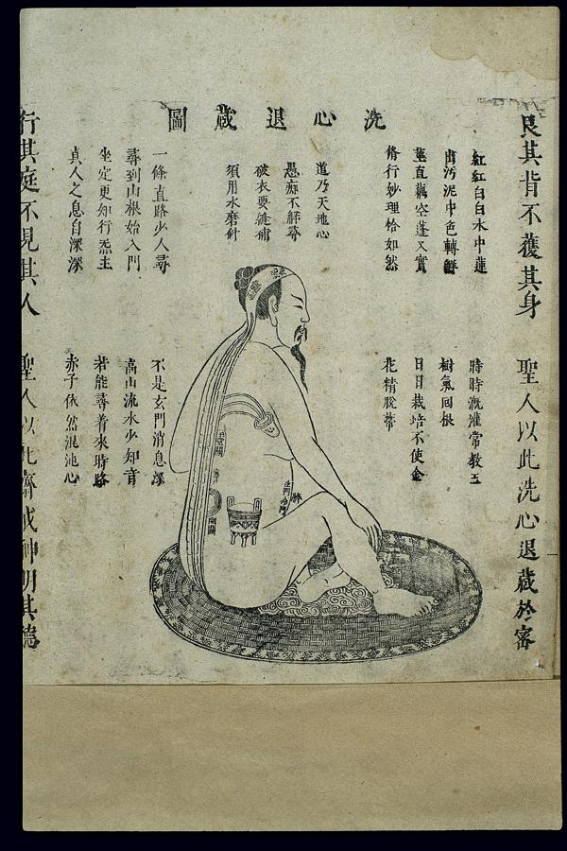 洗心退藏圖
艮其背不獲其身
聖人以此洗心退藏於密
紅紅白白水中蓮
出污泥中色轉鮮
莖直藕空蓬又實
脩行妙理恰如然
時時溉灌常教玉
樹氣回根
日日栽培不使金
花精脫蒂
道乃天地心
愚痴不解尋
破衣要縫補
須用水磨針
一條直路少人尋
尋到山根始入門
坐定更知行炁主
真人之息自深深
不是玄門消息深
高山流水少知音
若能尋着來時路
赤子依然混沌心
行其庭不見其人
聖人以此齋戒神明其德